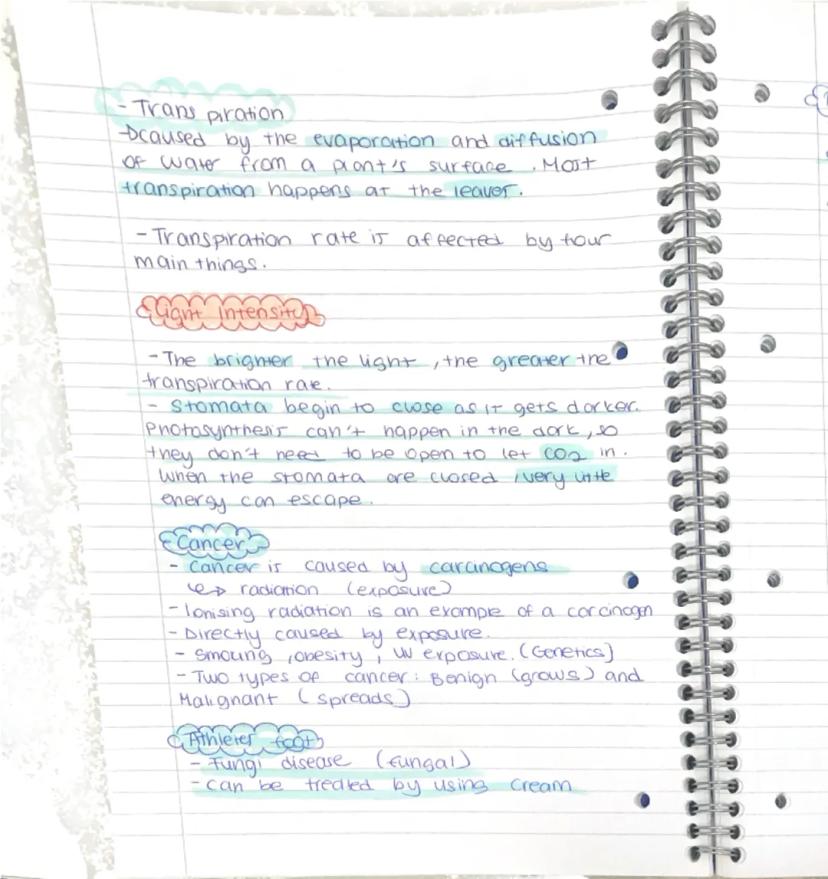 - Transpiration
→ caused by the evaporation and diffusion
of water from a plant's surface. Most
transpiration happens at the leaves.
- Transpiration rate is affected by four
main things.
Light Intensity
- The brighter the light, the greater the
transpiration rate.
- Stomata begin to close as it gets darker.
Photosynthesis can't happen in the dark, so
they don't need to be open to let CO2 in.
When the stomata are closed, very little
energy can escape.
Cancer
- Cancer is caused by carcinogens
↳ radiation (exposure)
- Ionising radiation is an example of a carcinogn
- Directly caused by exposure.
- Smoking, obesity, UV exposure. (Genetics)
- Two types of cancer: Benign (grows) and
Malignant (spreads)
Athletes foot
- Fungi disease (fungal)
- can be treated by using cream